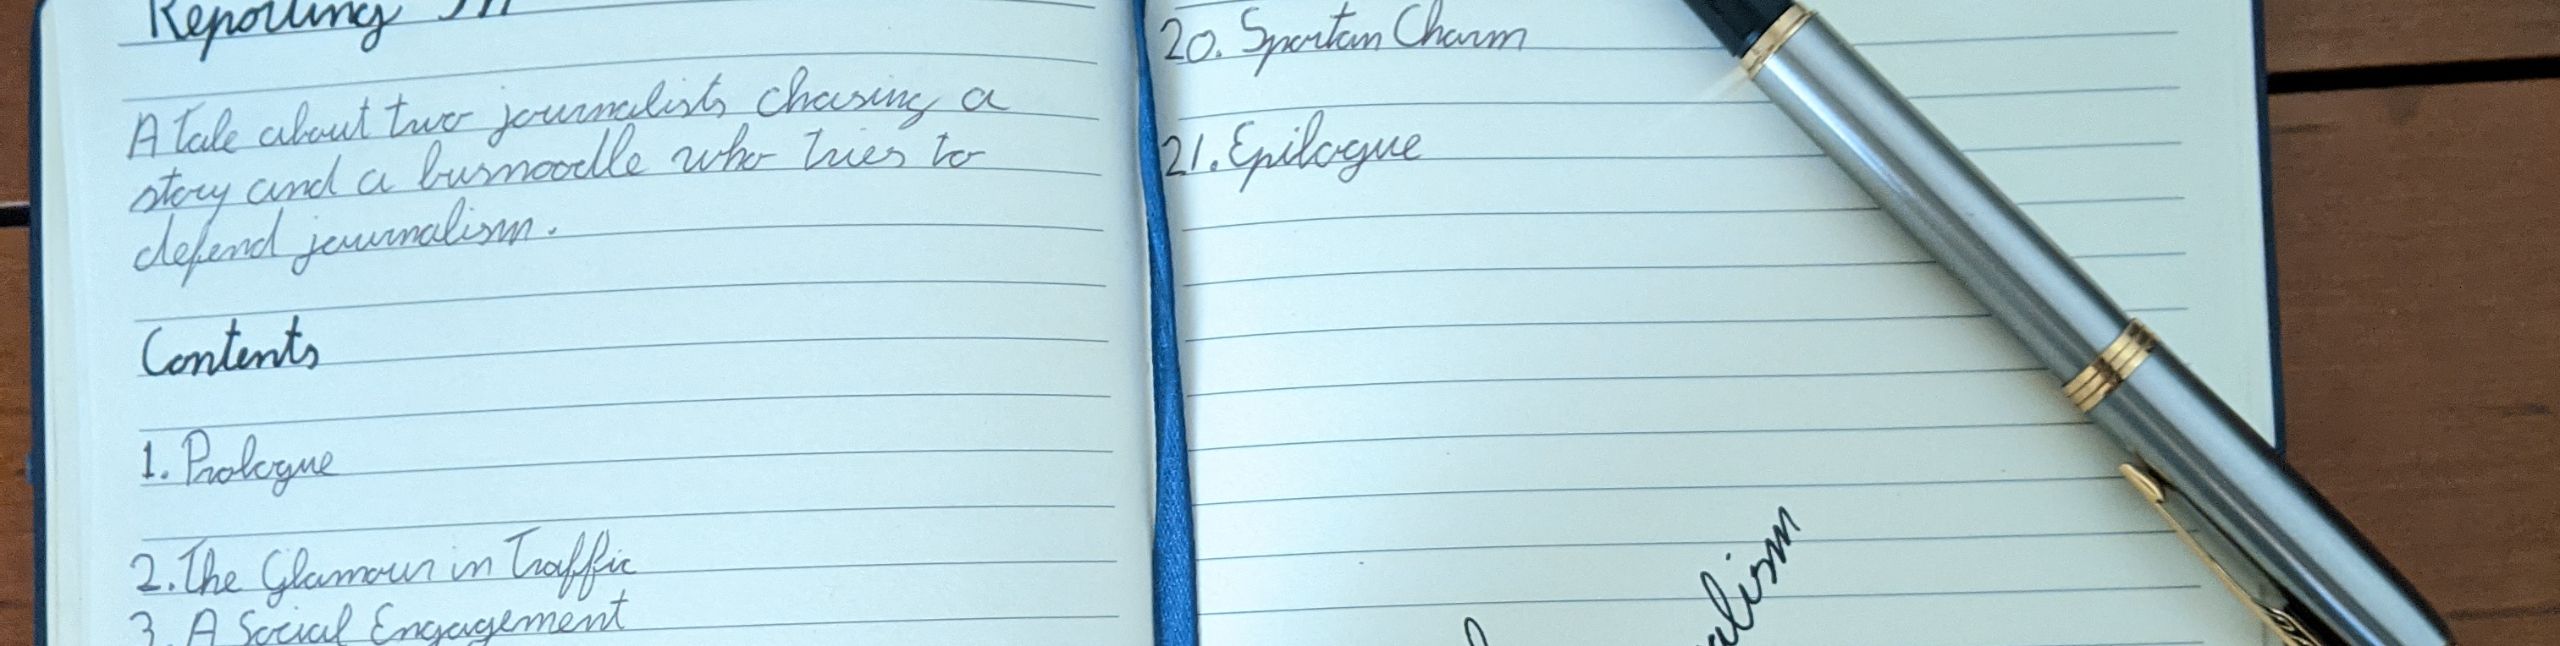 Reporting In
A Tale about two journalists chasing a
story and a busnoodle who tries to
defend journalism.
Contents
1. Prologue
2. The Glamour in Traffic
3. A Social Engagement
20. Spartan Charm
21. Epilogue